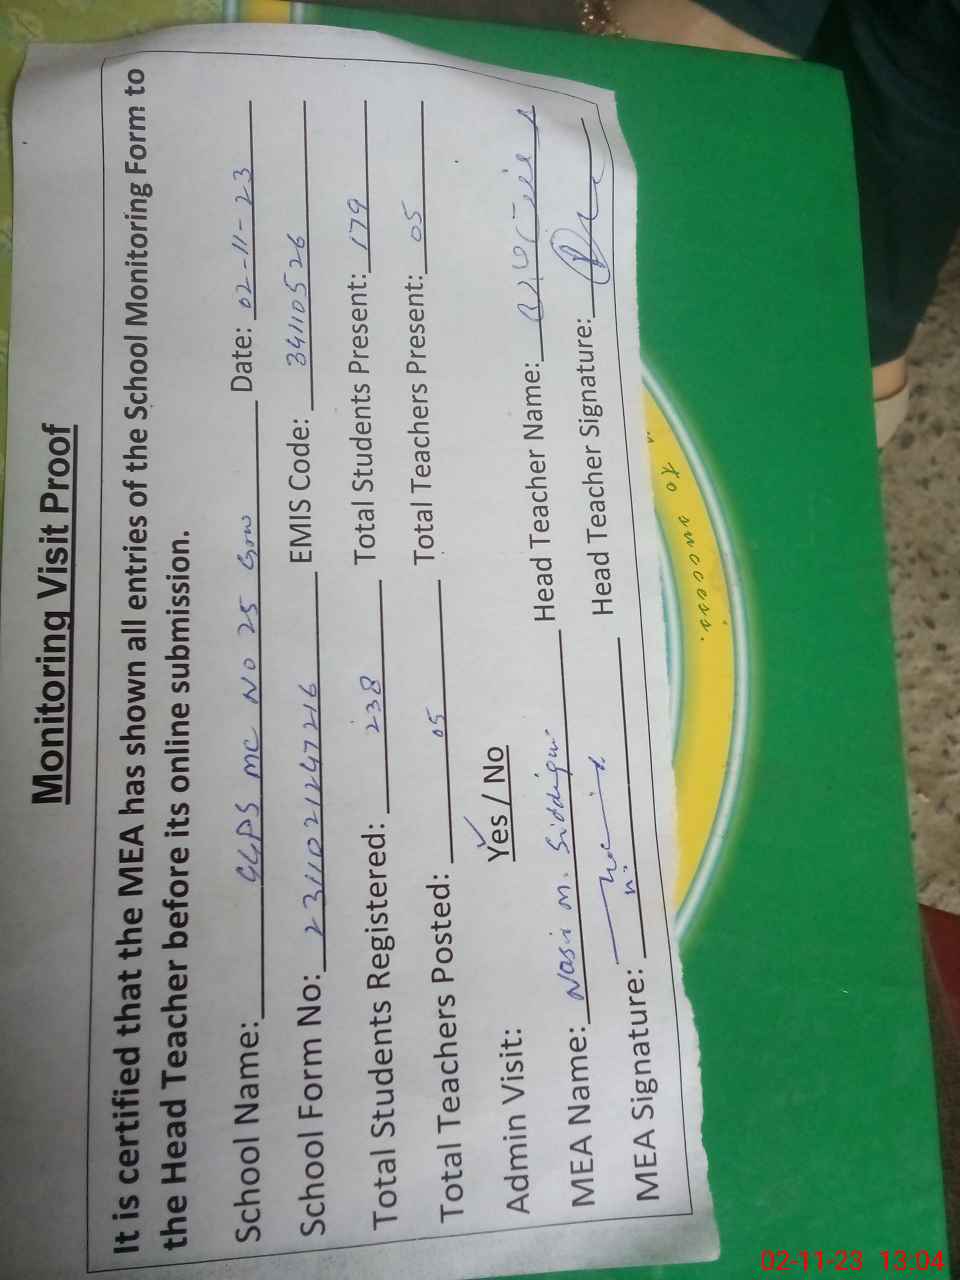 Monitoring Visit Proof
It is certified that the MEA has shown all entries of the School Monitoring Form to
the Head Teacher before its online submission.
School Name: GGPS MC NO 25 Grw Date: 02-11-23
School Form No: 231102121247216 EMIS Code: 34110526
Total Students Registered: 238 Total Students Present: 179
Total Teachers Posted: 05 Total Teachers Present: 05
Admin Visit: Yes / No
MEA Name: Nasir M. Siddiqui Head Teacher Name:
MEA Signature: Head Teacher Signature:
to success.
02-11-23 13:04